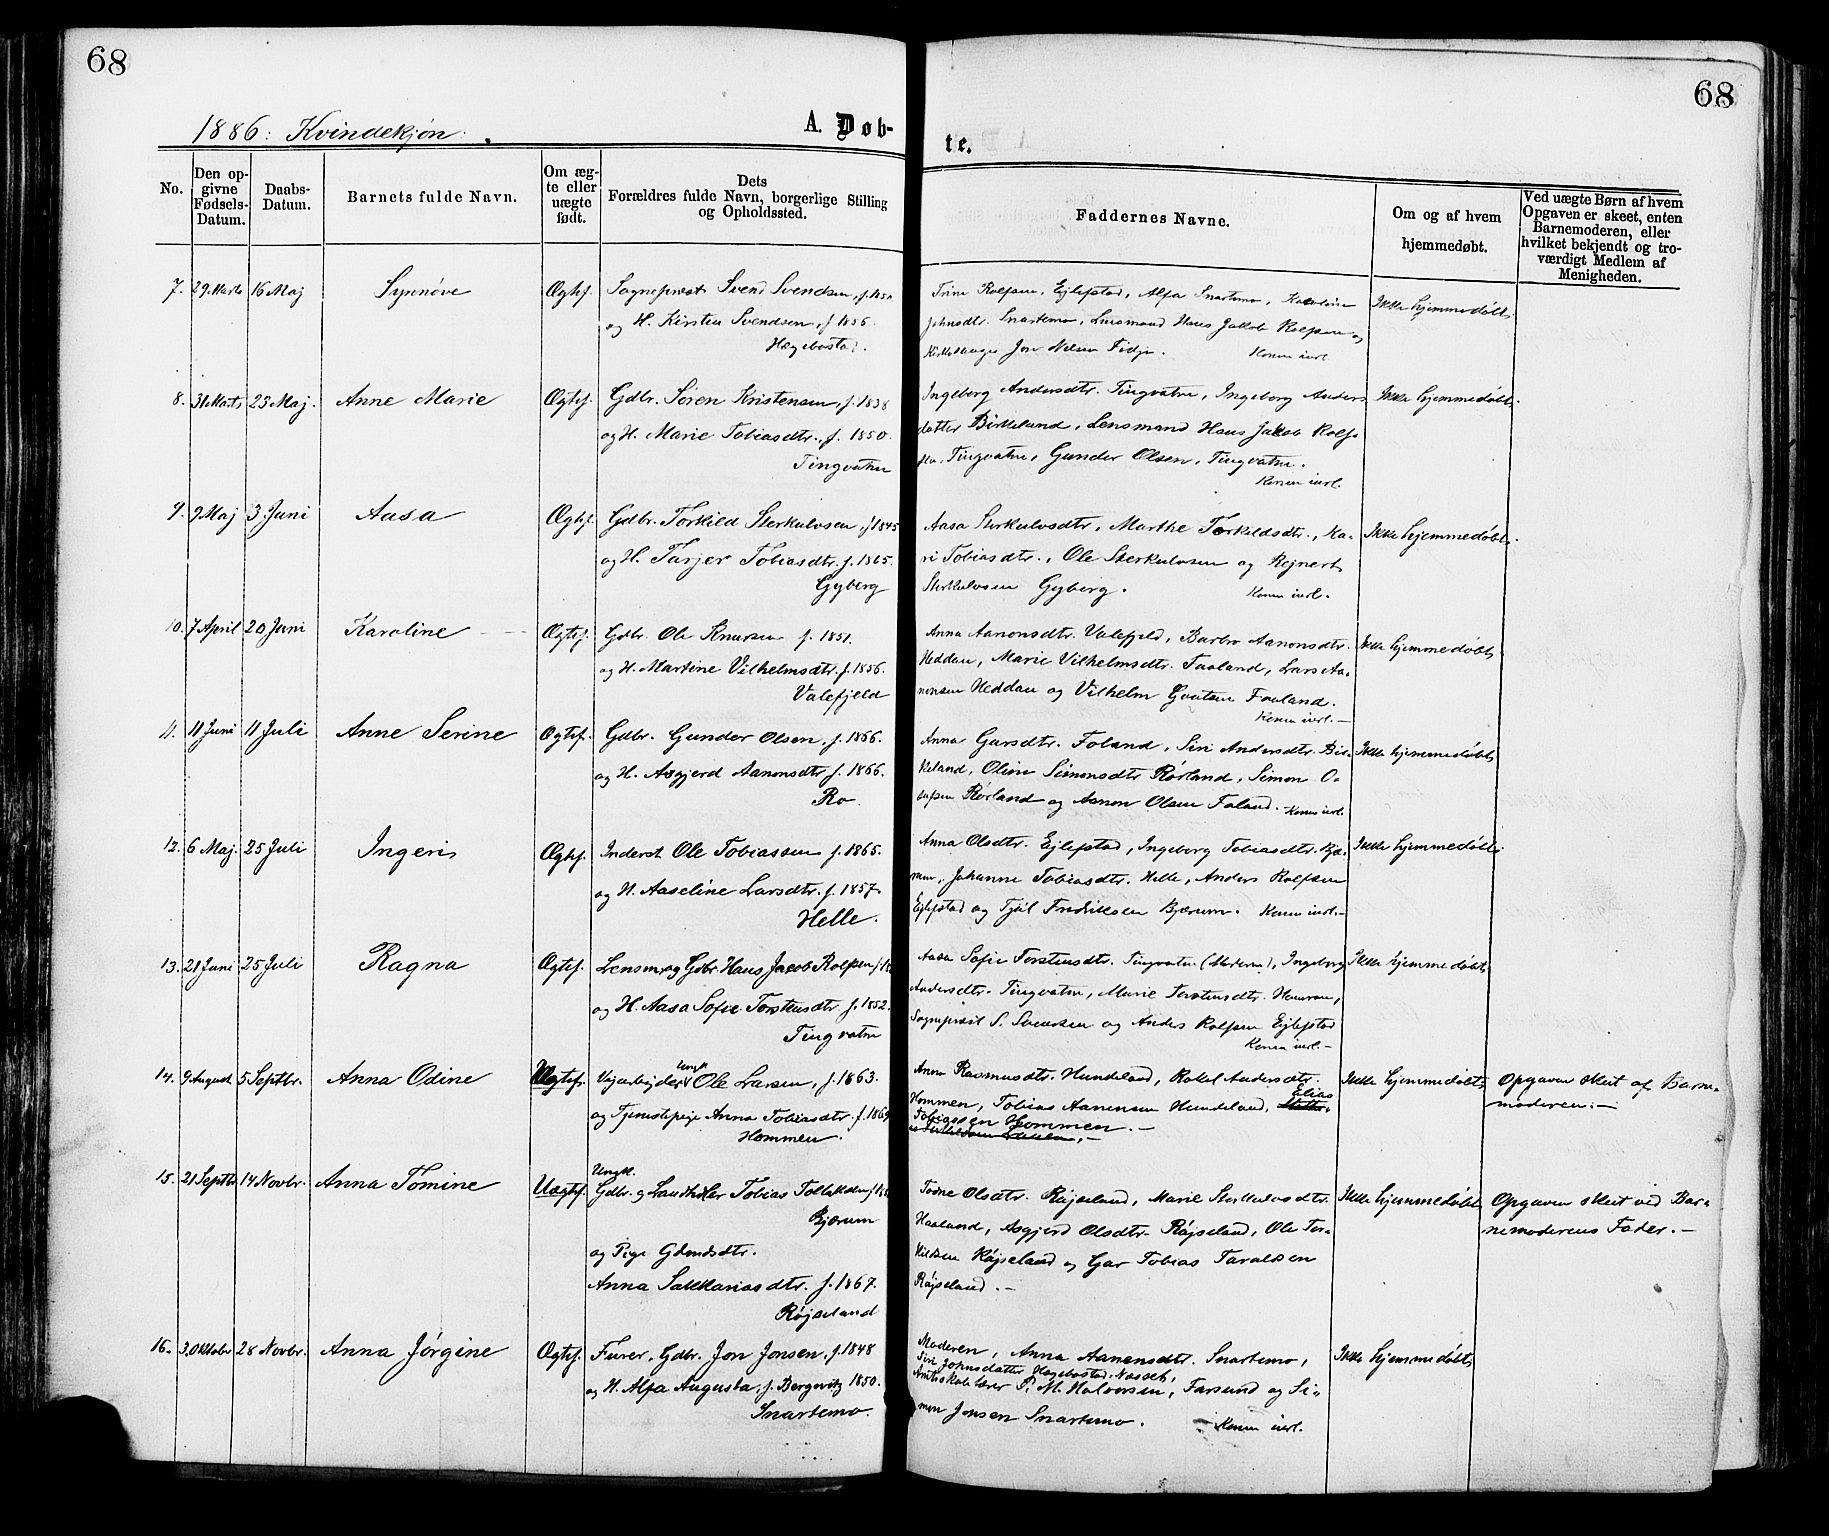 68
68
1886: Kvindekjøn.
A. Døb-
te.
No.
Den op-
givne
Fødsels-
Datum.
Daabs-
Datum.
Barnets fulde Navn.
Om æg-
te eller
uægte
født.
Dets
Forældres fulde Navn, borgerlige Stilling
og Opholdssted.
Faddernes Navne.
Om og af hvem
hjemmedøbt.
Ved uægte Børn af hvem
Opgaven er skeet, enten
Barnemoderen, eller
hvilket bekjendt og tro-
værdigt Medlem af
Menigheden.
7. 29 Marts 16 Maj Synnøve Ægtef. Sognepræst Svend Svendsen, f.
og H. Kirsten Svendsen, f 1856.
Hægebostad.
Trine Rolfsen, Ejlefstad, Alfa Snartemo, Karoline
Johnsdtr. Snartemo, Lensmand Hans Jakob Rolfsen og
Kirkesanger Jon Nilsen Fidje. Konen indl.
Ikke hjemmedøbt.
8. 31 Marts 23 Maj. Anne Marie Ægtef. Gdbr. Søren Kristensen, f. 1838
og H. Marie Tobiasdtr., f. 1850.
Tingvatne
Ingeborg Andersdtr. Tingvatne, Ingeborg Anders
datter Birkeland, Lensmand Hans Jakob Rolf-
sen, Tingvatne, Gunder Olsen, Tingvatne.
Konen indl.
Ikke hjemmedøbt.
9. 9 Maj 3 Juni Aasa Ægtef. Gdbr. Torkild Sterkulvsen f 1845
og H. Tarjer Tobiasdtr. f. 1865.
Gyberg
Aasa Sterkulvsdtr, Marthe Torkildsdtr., Ka-
ri Tobiasdtr., Ole Sterkulvsen og Rejnert
Sterkulvsen Gyberg. Konen indl.
Ikke hjemmedøbt.
10. 7 April 20 Juni Karoline Ægtef. Gdbr. Ole Knutsen f. 1851.
og H. Martine Vilhelmsdtr. f. 1856.
Valefjeld
Anna Aanonsdtr. Valefjeld, Barbro Aanonsdtr.
Heddan, Marie Vilhelmsdtr. Faaland, Lars Aa-
nonsen Heddan og Vilhelm Gautsen Faaland.
Konen indl. —
Ikke hjemmedøbt
11. 11 Juni 11 Juli Anne Serine Ægtef. Gdbr. Gunder Olsen, f. 1866.
og H. Asgjerd Aanonsdtr f. 1866.
Ro.
Anna Garsdtr. Foland, Siri Andersdtr. Bir-
keland, Oline Simonsdtr Rørland, Simon O-
lufsen Rørland og Aanon Olsen Foland. Konen indl.
Ikke hjemmedøbt
12. 6 Maj. 25 Juli Ingeri Ægtef. Inderst Ole Tobiassen f. 1865.
og H. Aaseline Larsdtr. f. 1857.
Helle.
Anna Olsdtr. Ejlefstad, Ingeborg Tobiasdtr. Bjæ-
rum, Johanne Tobiasdtr. Helle, Anders Rolfsen
Ejlefstad og Tjøl Fredriksen Bjærum. Konen indl. —
Ikke hjemmedøbt.
13. 21 Juni 25 Juli Ragna Ægtef. Lensm. og Gdbr Hans Jacob Rolfsen f.
og H. Aasa Sofie Torstensdtr f. 1852.
Tingvatne
Aasa Sofie Torstensdtr. Tingvatne (Moderen), Ingeborg
Andersdtr. Tingvatne, Marie Torstensdtr.
Sognepræst S. Svendsen og Anders Rolfsen Ejlefstad
Konen indl. —
Ikke hjemmedøbt
14. 9 August 5 Septbr. Anna Odine Uægtef. Vejarbejder Ungk Ole Larsen, f. 1863.
og Tjenestepige Anna Tobiasdtr. f. 1869
Hommen.
Anne Rasmusdtr. Hundeland, Rakel Andersdtr.
Hommen, Tobias Aanensen Hundeland, Elias
Tobiassen Hommen. —
Ikke hjemmedøbt
Opgaven skeet af Barne-
moderen. —
15. 21 Septbr 14 Novbr. Anna Tomine Uægtef. Ungk.
Gdbr. og Landhdler Tobias Tollaksen f.
Bjærum
og Pige Gdmdsdtr.
Anna Sakkariasdtr. f. 1867.
Røjseland
Tone Olsdtr. Røjseland, Marie Sterkulvsdtr.
Haaland, Asgjerd Olsdtr. Røjseland, Ole Ter-
kildsen Røjseland og Gar Tobias Taraldsen
Røjseland. —
Ikke hjemmedøbt
Opgaven skeet ved Bar-
nemoderens Fader. —
16. 3 Oktober 28 Novbr. Anna Jørgine Ægtef. Furer, Gdbr. Jon Jonsen, f. 1848
og H. Alfa Augusta, f. Bergwitz 1850.
Snartemo.
Moderen, Anna Aanensdtr. Snartemo,
Siri Johnsdatter Hægebostad, Nesset,
Amtsskolelærer P. M. Halvorsen, Farsund og Si-
men Jonsen Snartemo. Konen indl.
Ikke hjemmedøbt